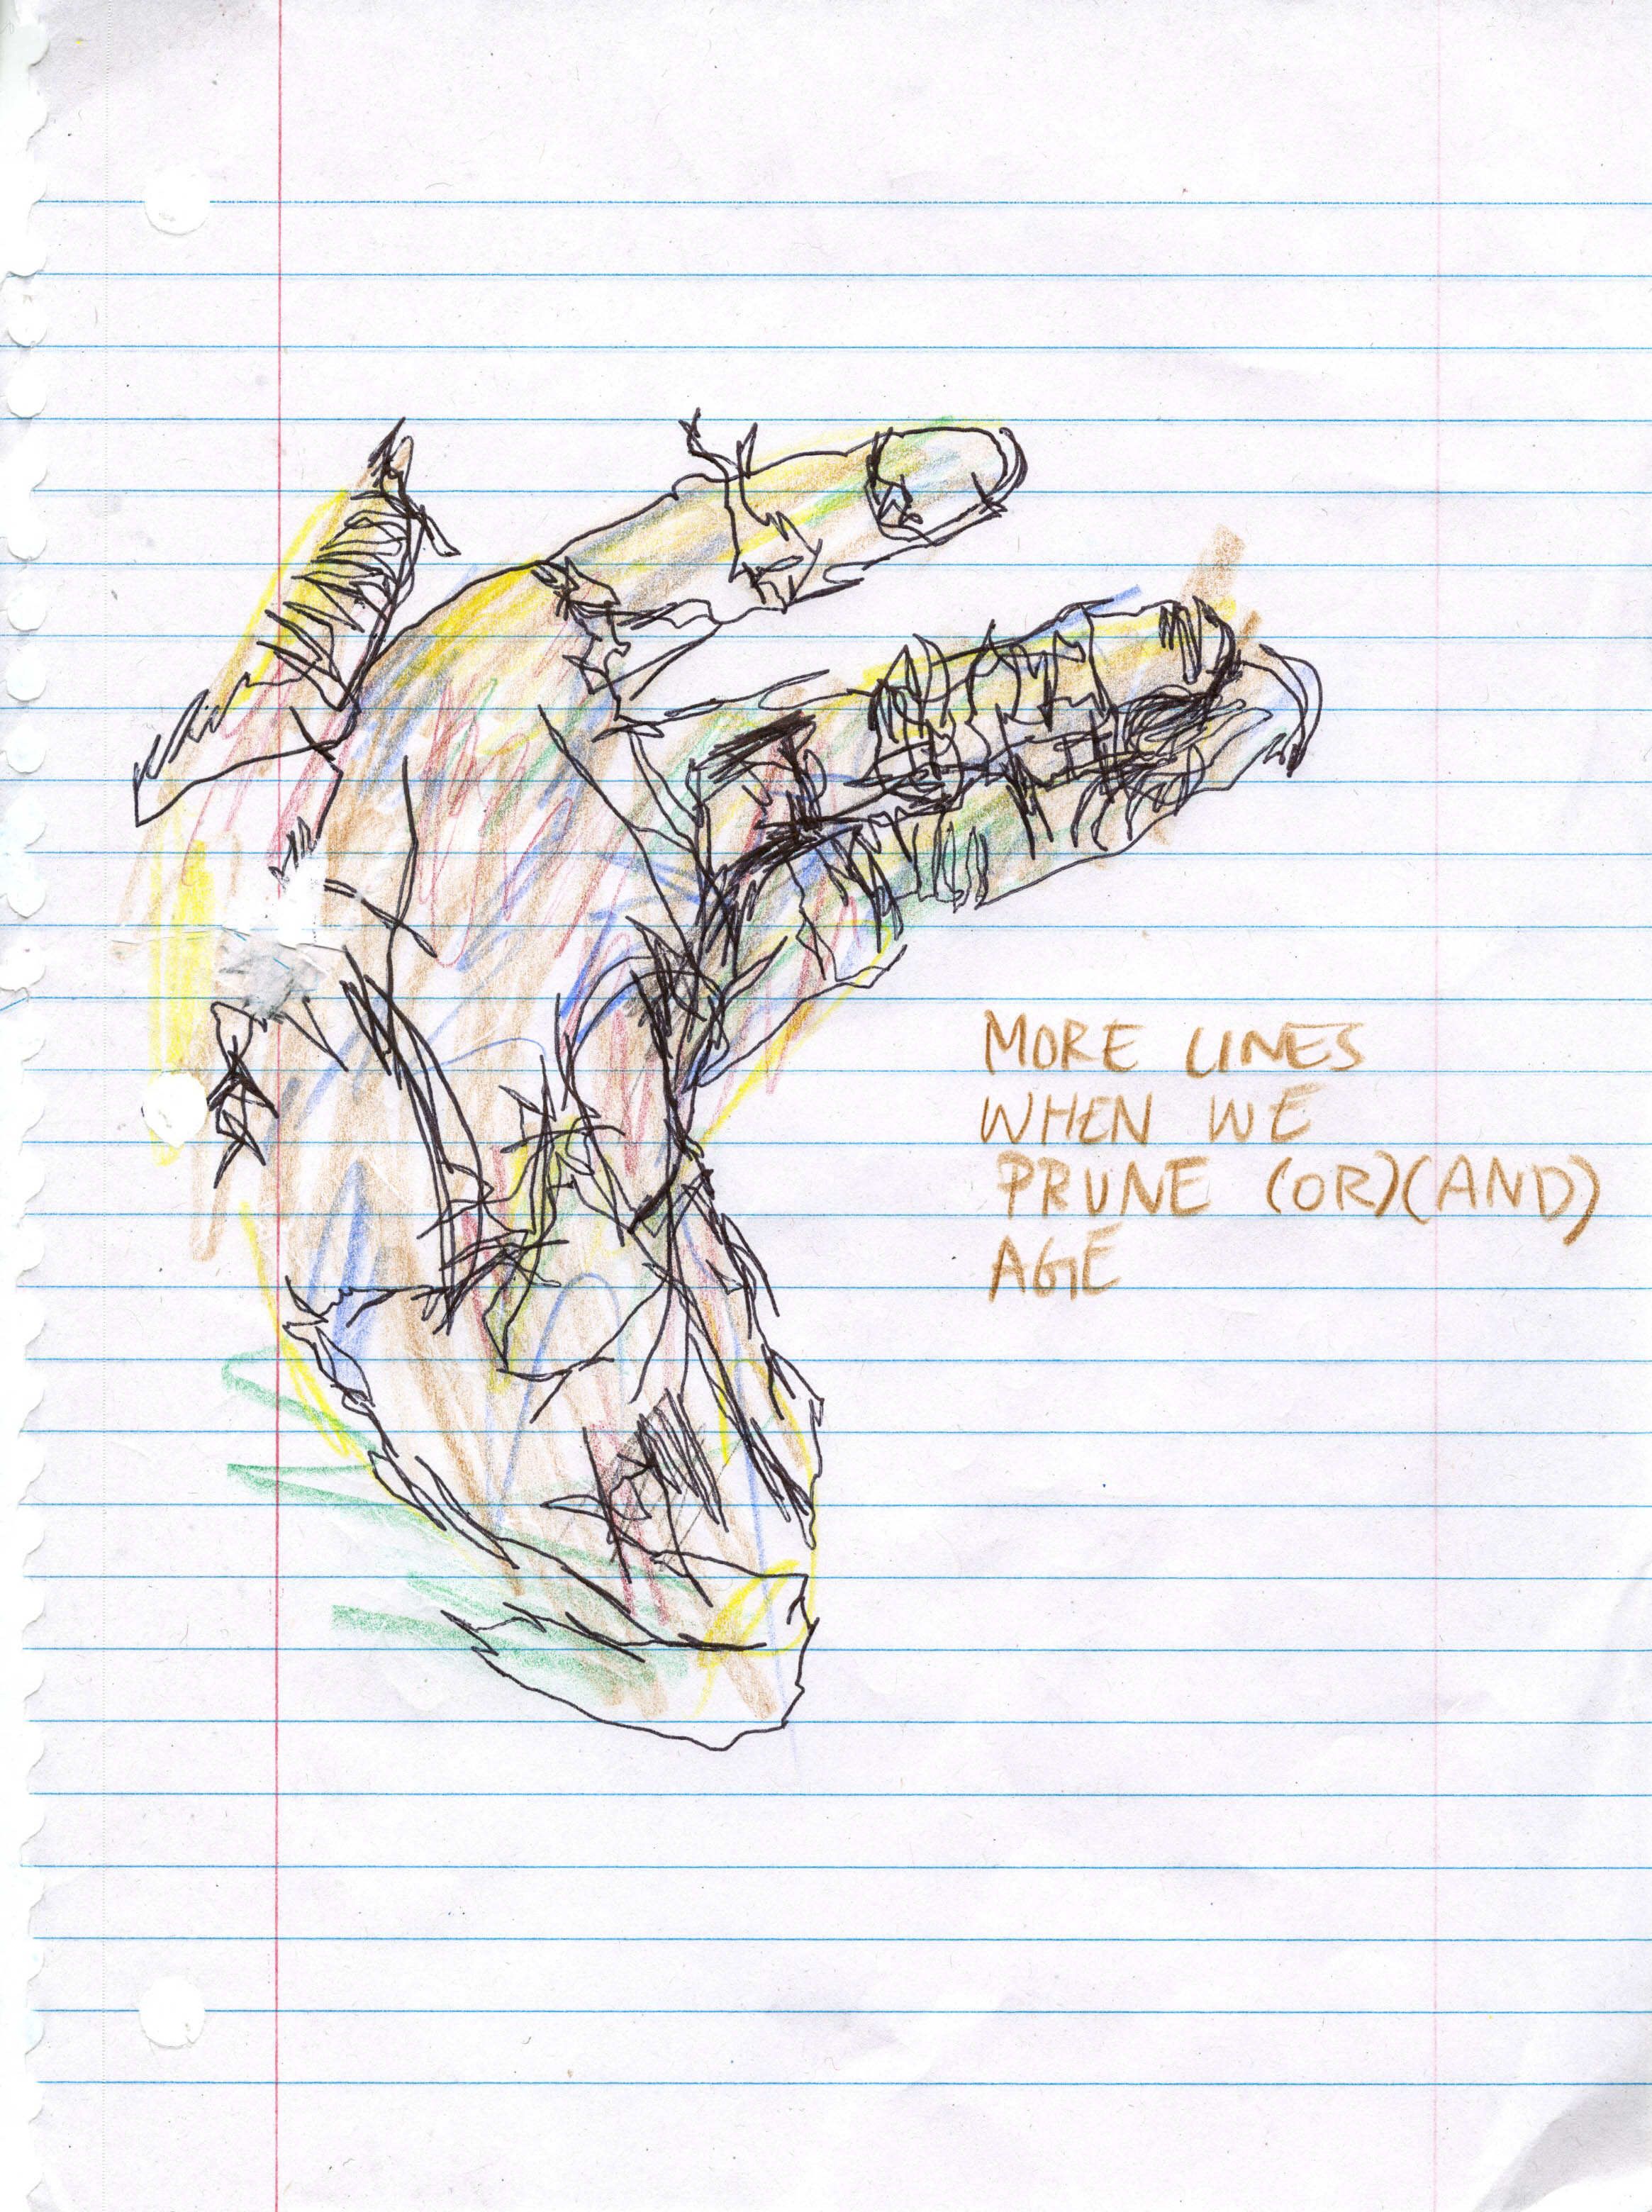 MORE LINES
WHEN WE
PRUNE (OR)(AND)
AGE